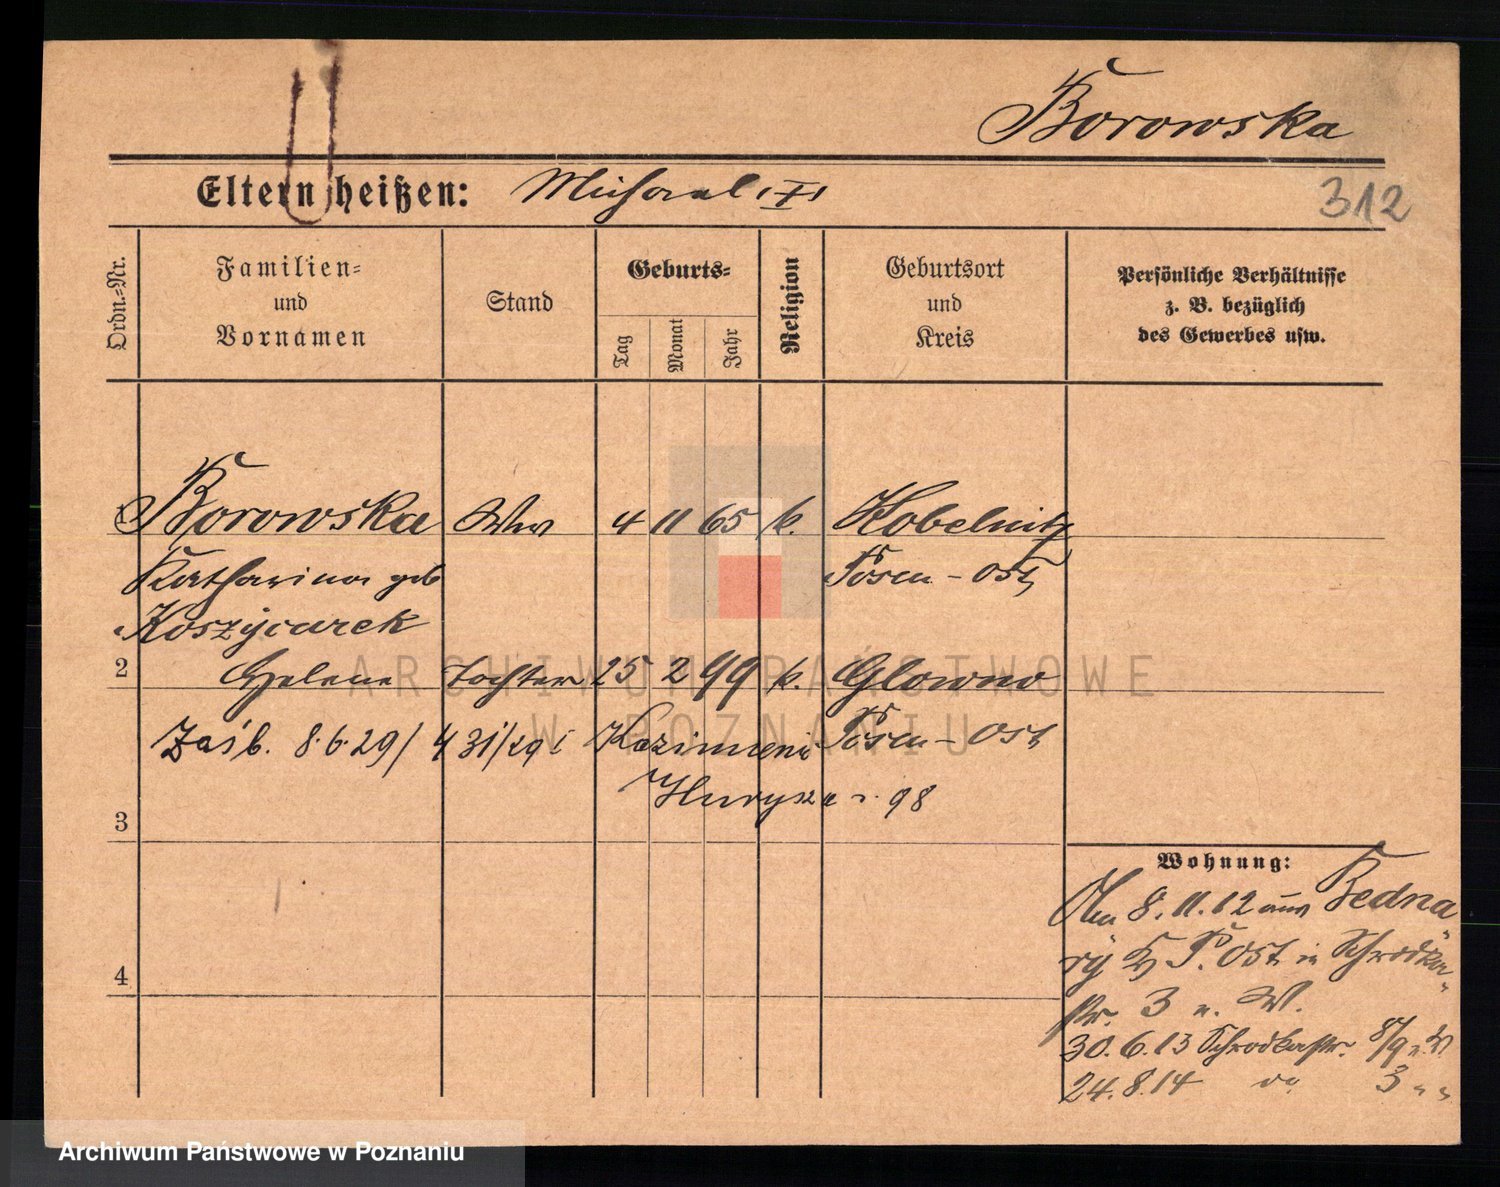 Borowska
Eltern heißen: Michael (†)
312
Ordn.-Nr.
Familien-
und
Vornamen
Stand
Geburts-
Tag
Monat
Jahr
Religion
Geburtsort
und
Kreis
Persönliche Verhältnisse
z. B. bezüglich
des Gewerbes usw.
1 Borowska Ww 4 11 65 k. Kobelnitz
Katharina geb Posen-Ost
Koszycarek
2 Helene Tochter 25 2 99 k. Glowno
Zaśb. 8.6.29/ 431/29 Kazimierz Posen-Ost
98
3
Wohnung:
8.11.12 aus Bedna
ry P. Ost in Schrodka
4
str. 3 W.
30.6.13 Schrodkastr. 8/9
24.8.14 do 3 " "
ARCHIWUM PAŃSTWOWE
W POZNANIU
Archiwum Państwowe w Poznaniu